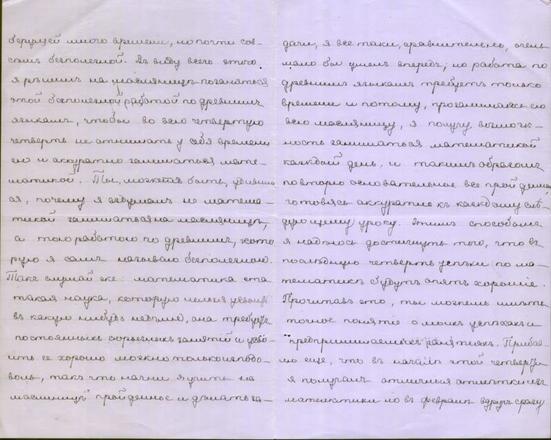 берущей много времени, но почти сов-
сѣмъ бесполезной. Въ виду всего этого
я рѣшилъ на масляницѣ позаняться
этой бесполезной работой по древнимъ
языкамъ, чтобы во всю четвертую
четверть не отнимать у себя времени
и аккуратно заниматься мате-
матикой. Ты, можетъ быть,
ся, почему я задумалъ не матема-
тикой заниматься на масляницѣ,
а той работой по древнимъ, кото-
рую я самъ называю бесполезной.
Такъ слушай же: математика эта
такая наука, которую нельзя
въ какую нибудь недѣлю, она требуетъ
постоянныхъ занятій и усво-
ить ее хорошо можно только
воль, такъ что начни я учить на
масляницѣ пройденное и дѣлать за-
дачи, я все таки, сравнительно, очень
мало бы ушелъ впередъ, но работа по
древнимъ языкамъ требуетъ только
времени и потому, прозанимавшись ею
всю масляницу, я получу возмож-
ность заниматься математикой
каждый день, и такимъ образомъ
повторю основательное все пройденное
готовясь аккуратно къ каждому слѣ-
дующему уроку. Этимъ способомъ
я надѣюсь достигнуть того, что въ
послѣднюю четверть успѣхи по ма-
тематикѣ будутъ опять хорошіе.
Прочитавъ это, ты можешь имѣть
точное понятіе о моихъ успѣхахъ и
предпринимаемыхъ занятіяхъ. Прибав-
лю еще, что въ началѣ этой четверти
я получалъ отличныя отмѣтки изъ
математики но въ февралѣ вдругъ сразу